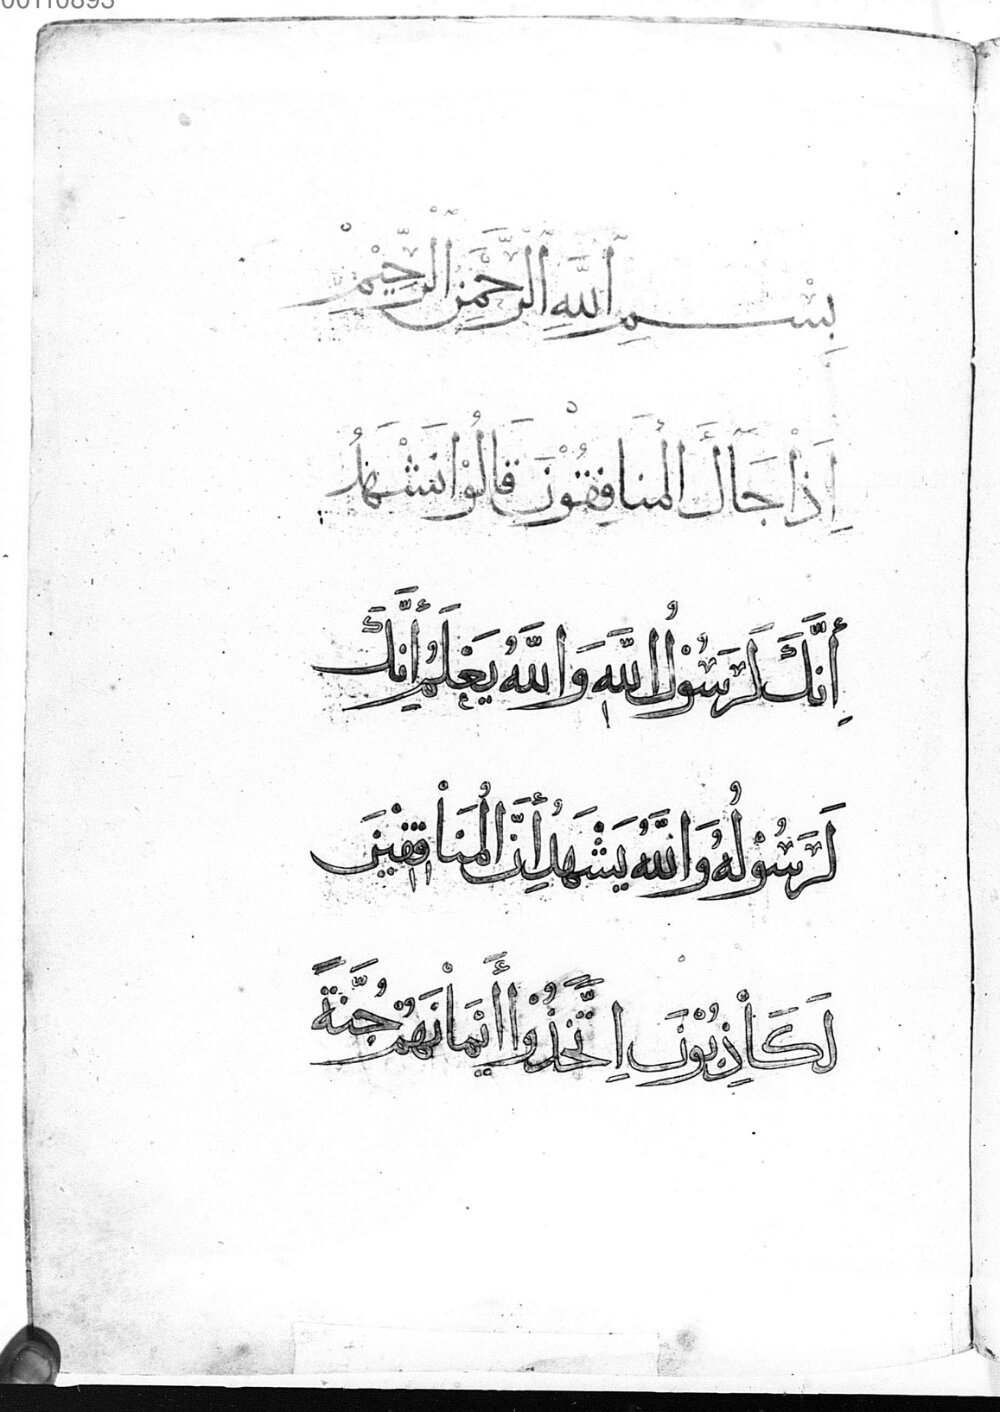 00110893
بِسْمِ اللَّهِ الرَّحْمَنِ الرَّحِيمِ
إِذَا جَآكَ الْمُنَافِقُوْنَ قَالُوْا نَشْهَدُ
إِنَّكَ لَرَسُوْلُ اللَّهِ وَاللَّهُ يَعْلَمُ إِنَّكَ
لَرَسُوْلُهُ وَاللَّهُ يَشْهَدُ إِنَّ الْمُنَافِقِيْنَ
لَكَاذِبُوْنَ اِتَّخَذُوْا أَيْمَانَهُمْ جُنَّةً